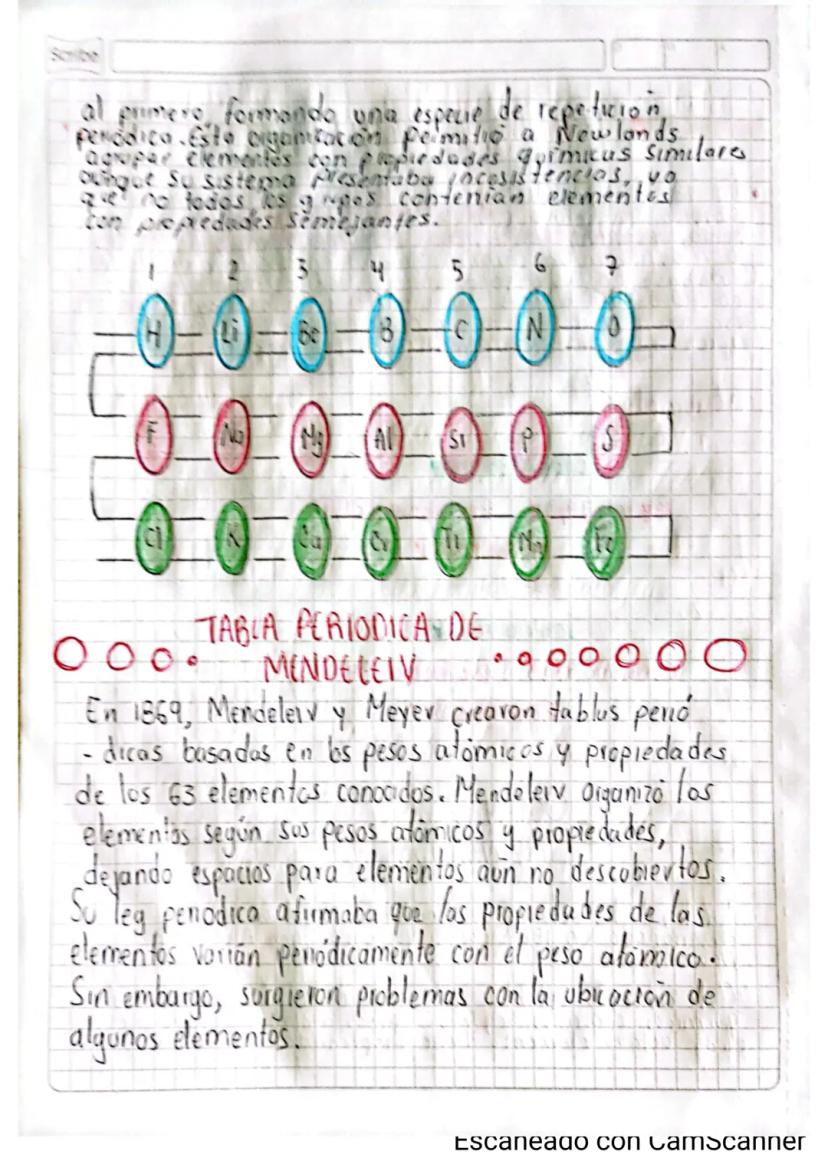 Scribe
al primero, formando una especie de repetición
periódica. Esta organización permitió a Newlands
agrupar elementos con propiedades químicas similares
aunque su sistema presentaba incosistencias, ya
que no todos los grupos contenian elementos
con propiedades semejantes.
1 2 3 4 5 6 7
H Li Be B C N O
F Na Mg Al Si P S
Cl K Ca Cr Ti Mn Fe
TABLA PERIODICA DE
MENDELEIV
En 1869, Mendeleiv y Meyer crearon tablas perió
- dicas basadas en los pesos atómicos y propiedades
de los 63 elementos conocidos. Mendeleiv organizó los
elementos según sus pesos atómicos y propiedades,
dejando espacios para elementos aún no descubiertos.
Su ley periodica afirmaba que las propiedades de las
elementos varian periódicamente con el peso atómico.
Sin embargo, surgieron problemas con la ubicación de
algunos elementos.
Escaneado con CamScanner